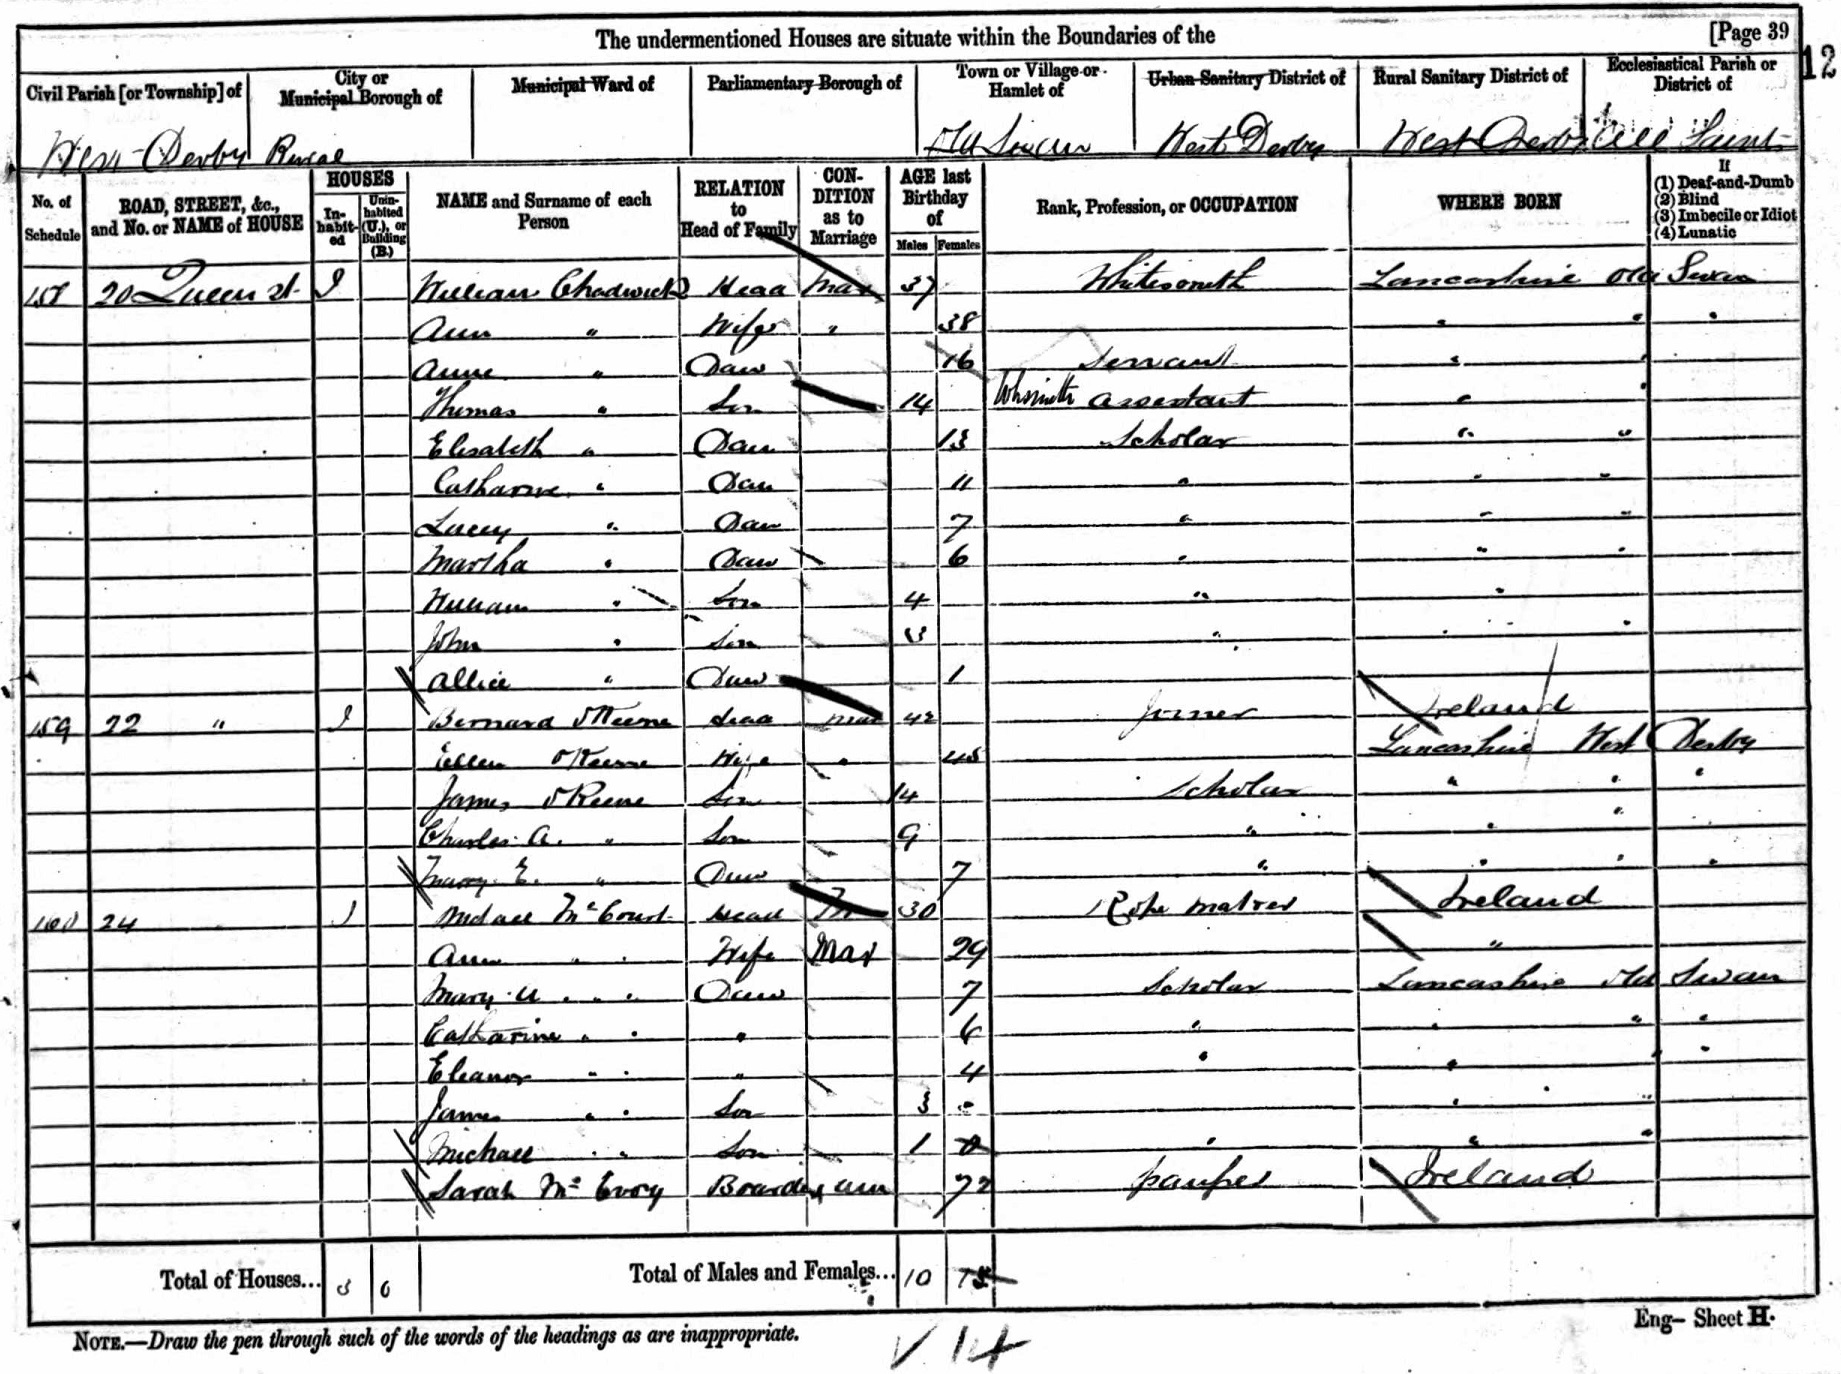 The undermentioned Houses are situate within the Boundaries of the [Page 39
12
Civil Parish [or Township] of City or Municipal Borough of Municipal Ward of Parliamentary Borough of Town or Village or Hamlet of Urban Sanitary District of Rural Sanitary District of Ecclesiastical Parish or District of
West Derby Rural Old Swan West Derby West Derby All Saints
No. of Schedule ROAD, STREET, &c., and No. or NAME of HOUSE HOUSES In-habit-ed Unin-habited (U.), or Building (B.) NAME and Surname of each Person RELATION to Head of Family CON-DITION as to Marriage AGE last Birthday of Males Females Rank, Profession, or OCCUPATION WHERE BORN If (1) Deaf-and-Dumb (2) Blind (3) Imbecile or Idiot (4) Lunatic
158 20 Queen St. I William Chadwick Head Mar 37 Whitesmith Lancashire Old Swan
Ann " Wife " 38 " " "
Anne " Daur 16 Servant " "
Thomas " Son 14 Whsmith Assestant " "
Elisabeth " Daur 13 Scholar " "
Catharine " Daur 11 " " "
Lucey " Daur 7 " " "
Martha " Daur 6 " " "
William " Son 4 " "
John " Son 3 " " "
Allice " Daur 1
159 22 " I Bernard O'Keene Head Mar 42 Joiner Ireland
Ellen O'Keene Wife " 45 Lancashire West Derby
James O'Keene Son 14 Scholar " " "
Charles A. " Son 9 " " "
Mary E. " Daur 7 " " " "
160 24 I Michael McCourt Head M 30 Rope maker Ireland
Ann " " Wife Mar 29 "
Mary A " " Daur 7 Scholar Lancashire Old Swan
Catharine " " " 6 " " " "
Eleanor " " " 4 " " " "
James " " Son 3 " "
Michael " " Son 1 " " "
Sarah Mc Evoy Boarding um 72 pauper Ireland
Total of Houses... 3 0 Total of Males and Females... 10 15
14
NOTE.—Draw the pen through such of the words of the headings as are inappropriate.
Eng- Sheet H.